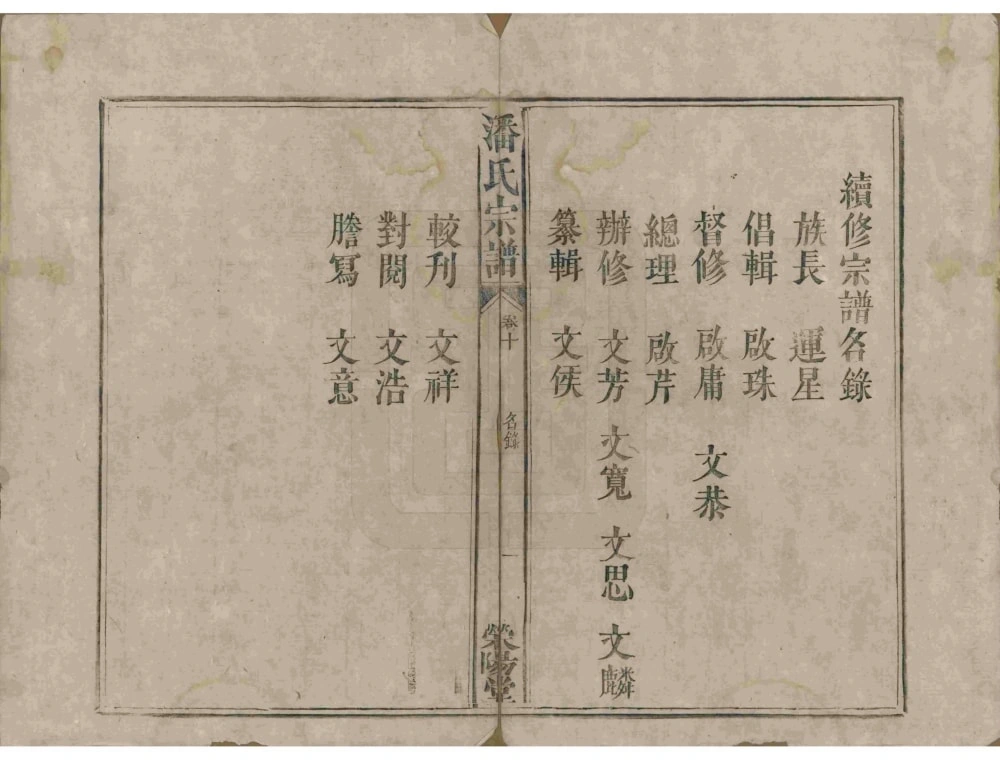 續修宗譜名錄
族長 運星
倡輯 啟珠
督修 啟庸 文恭
總理 啟芹
辦修 文芳 文寬 文思 文麟
纂輯 文侯
潘氏宗譜 卷十 名錄 一 滎陽堂
較刊 文祥
對閱 文浩
謄寫 文意